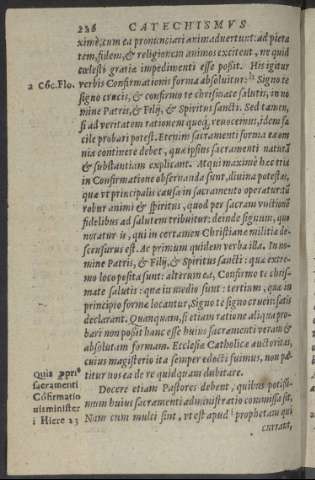 236 CATECHISMVS
ximè, cum ea pronunciari animaduertunt: ad pieta
tem, fidem, & religionem animos excitent, ne quid
cœlesti gratiæ impedimenti esse possit. His igitur
a Cōc. Flo. verbis Confirmationis forma absoluitur: Signo te
signo crucis, & confirmo te chrismate salutis, in no
mine Patris, & Filij, & Spiritus sancti. Sed tamen,
si ad veritatem rationem quoq; reuocemus, idem fa
cile probari potest. Etenim sacramenti forma ea om
nia continere debet, quæ ipsius sacramenti naturā
& substantiam explicant. Atqui maximè hæc tria
in Confirmatione obseruanda sunt, diuina potestas,
quæ vt principalis causa in sacramento operatur: tū
robur animi & spiritus, quod per sacram vnctionē
fidelibus ad salutem tribuitur: deinde signum, quo
notatur is, qui in certamen Christianæ militiæ de-
scensurus est. Ac primum quidem verba illa. In no-
mine Patris, & Filij, & Spiritus sancti: quæ extre-
mo loco posita sunt: alterum ea, Confirmo te chris-
mate salutis: quæ in medio sunt: tertium, quæ in
principio formæ locantur, Signo te signo crucis satis
declarant. Quamquam, si etiam ratione aliqua pro-
bari non possit hanc esse huius sacramenti veram &
absolutam formam. Ecclesiæ Catholicæ auctoritas,
cuius magisterio ita semper edocti fuimus, non pa-
titur nos ea de re quidquam dubitare.
Quis ꝓpriꝰ
sacramenti
Cōfirmatio
nis minister
i Hiere 23
Docere etiam Pastores debent, quibus potissi-
mum huius sacramenti administratio commissa sit,
Nam cum multi sint, vt est apud prophetam qui
currant,